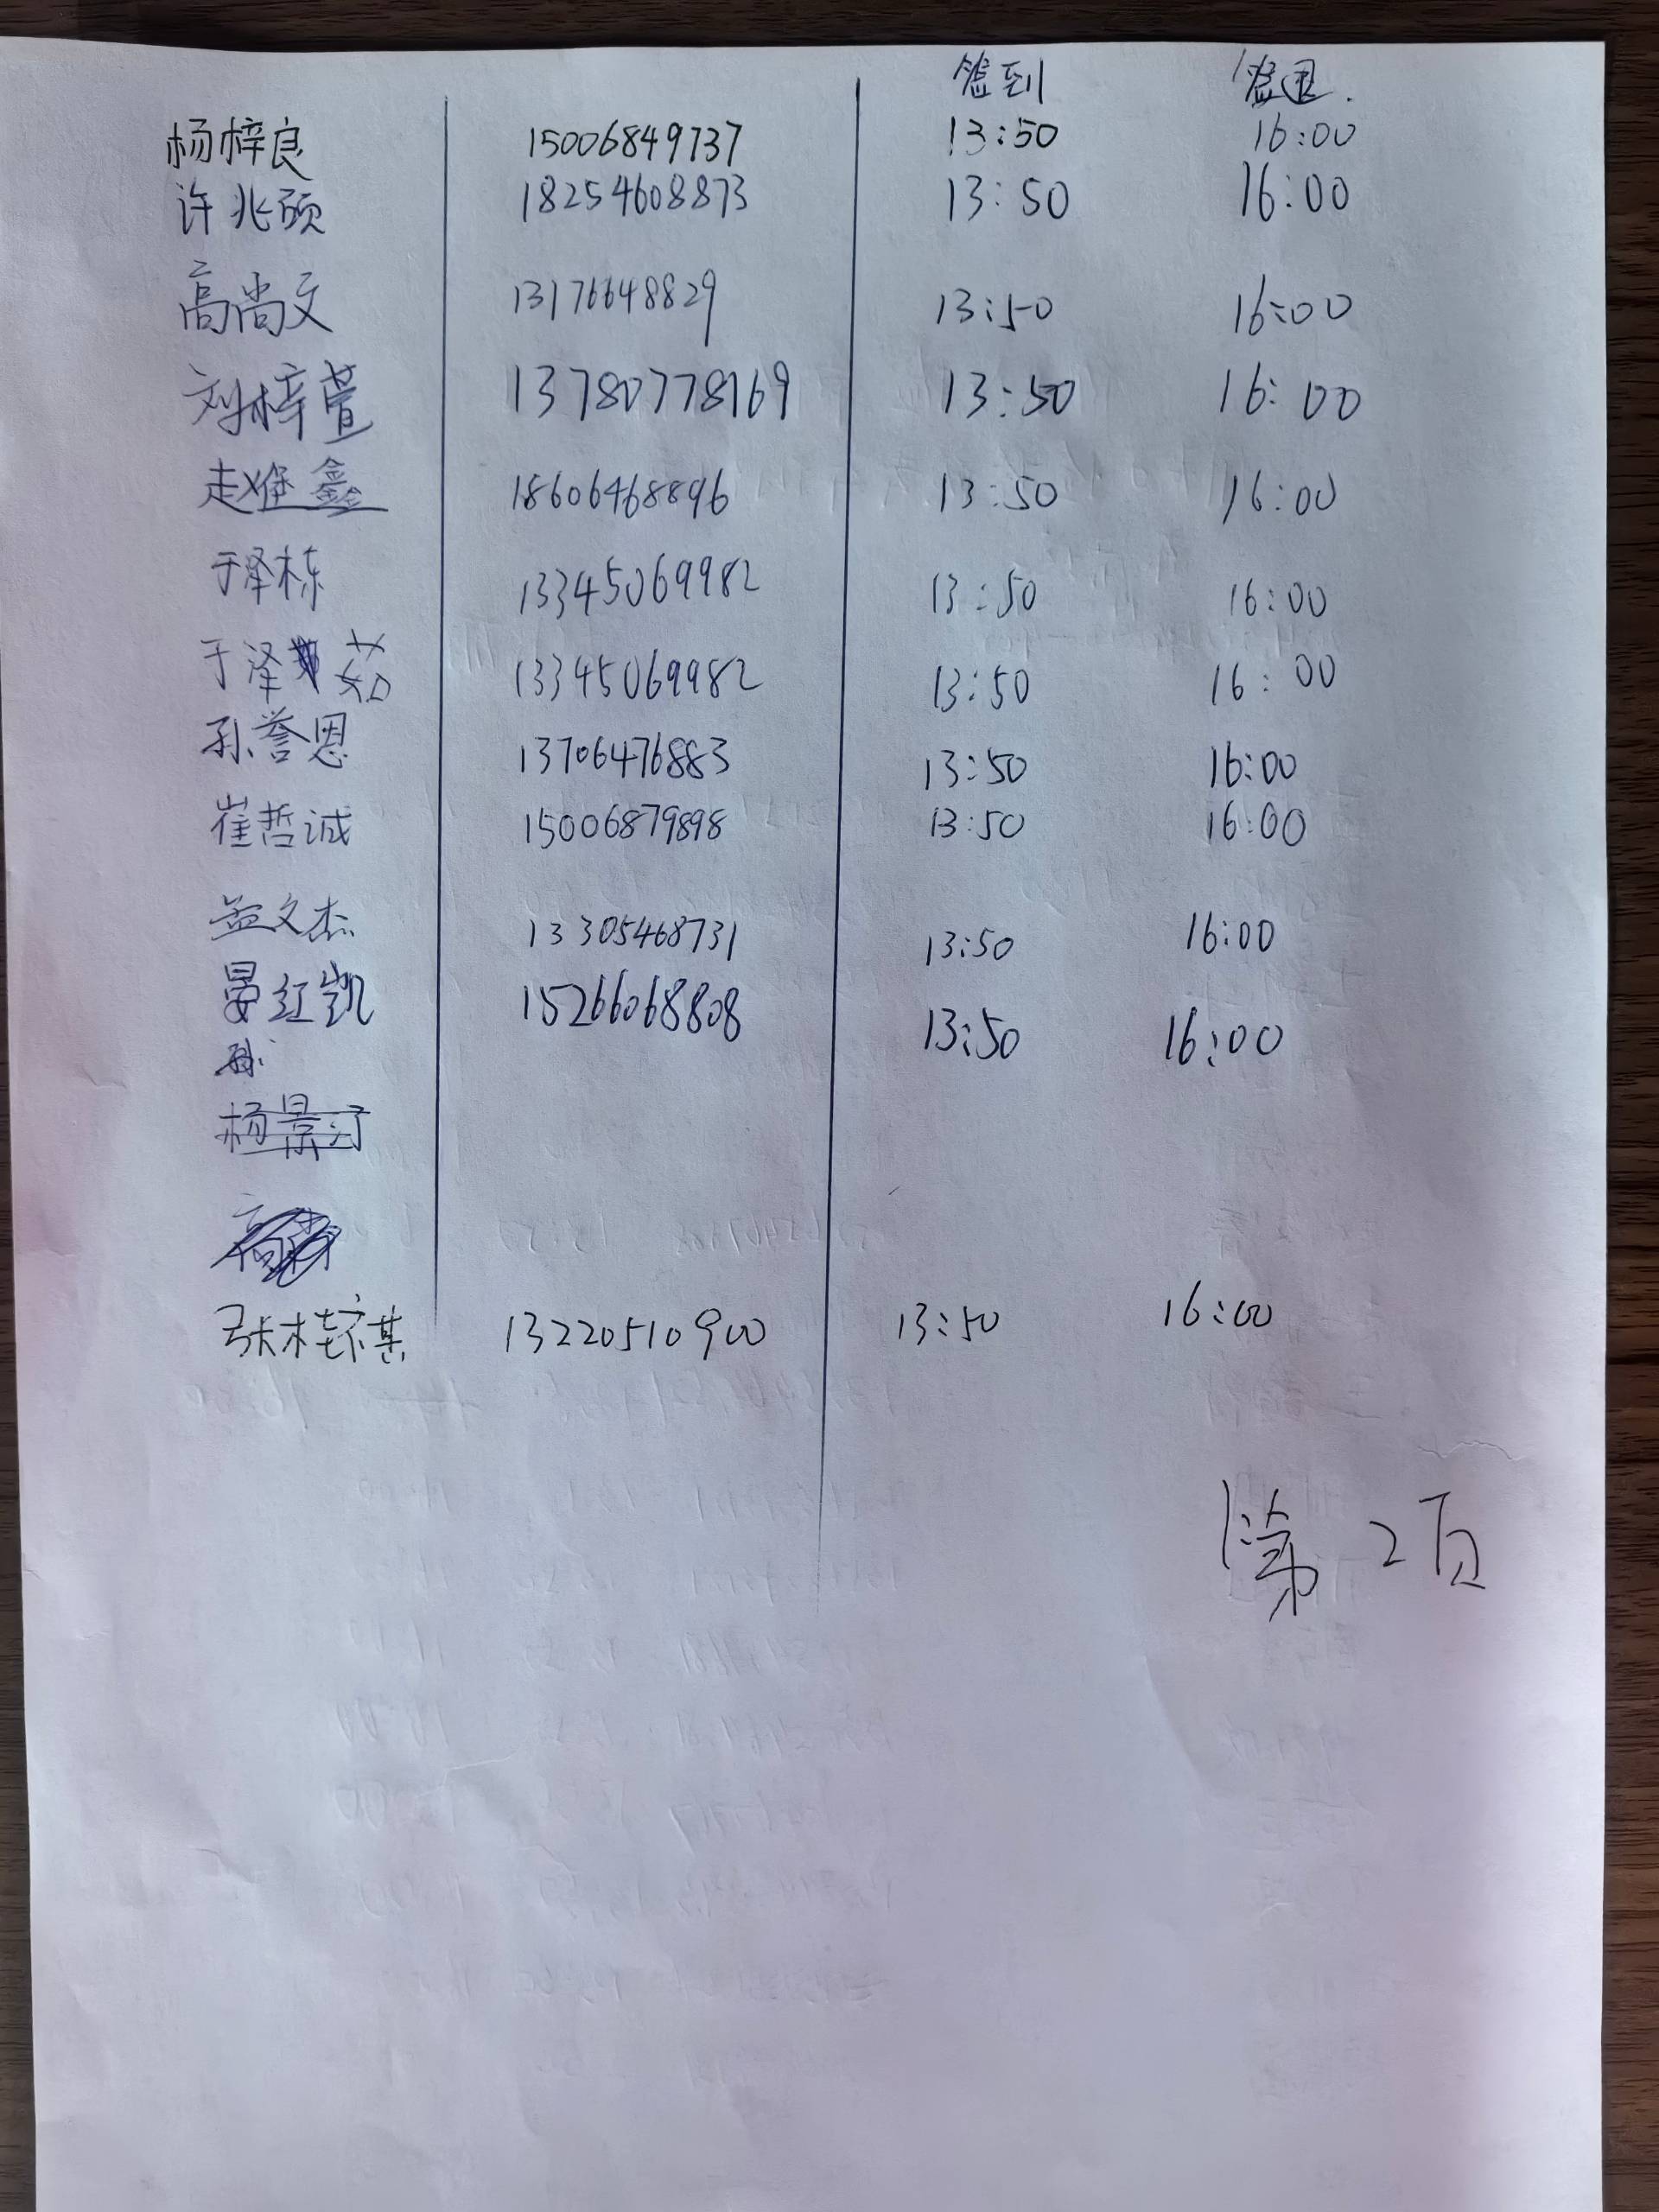 签到 签退.
杨梓良 15006849737 13:50 16:00
许兆硕 18254608873 13:50 16:00
高尚文 13176648829 13:50 16:00
刘梓萱 13780778769 13:50 16:00
赵 鑫 18606468896 13:50 16:00
于泽栋 13345069982 13:50 16:00
于泽茹 13345069982 13:50 16:00
孙誉恩 13706476883 13:50 16:00
崔哲诚 15006879898 13:50 16:00
孟文杰 13305468731 13:50 16:00
晏红凯 15266068808 13:50 16:00
杨景
张桂 13220510900 13:50 16:00
第2页